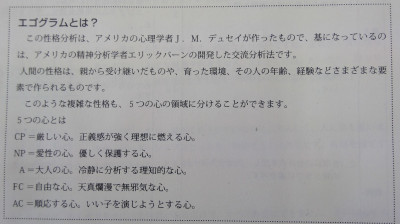 エゴグラムとは？
この性格分析は、アメリカの心理学者J．M．デュセイが作ったもので、基になっているの
は、アメリカの精神分析学者エリックバーンの開発した交流分析法です。
人間の性格は、親から受け継いだものや、育った環境、その人の年齢、経験などさまざまな要
素で作られるものです。
このような複雑な性格も、５つの心の領域に分けることができます。
５つの心とは
CP＝厳しい心。正義感が強く理想に燃える心。
NP＝愛性の心。優しく保護する心。
A＝大人の心。冷静に分析する理知的な心。
FC＝自由な心。天真爛漫で無邪気な心。
AC＝順応する心。いい子を演じようとする心。